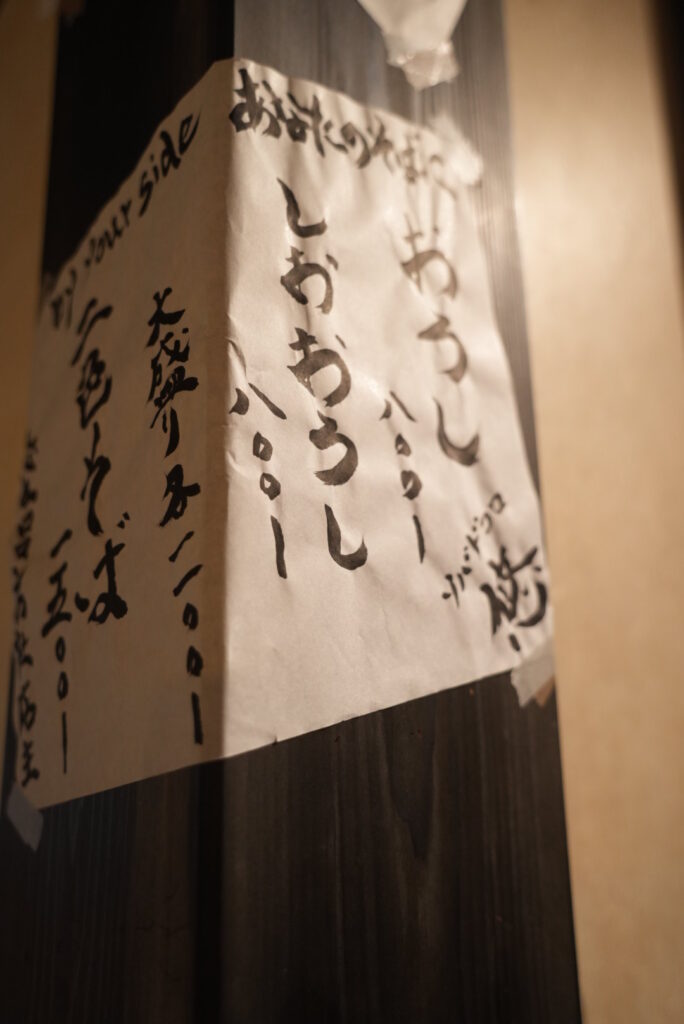 あなたのそばに
By your side
おろし
八〇〇ー
しおおろし
八〇〇ー
大盛り各二〇〇ー
二色そば
一五〇〇ー
ソバドコロ